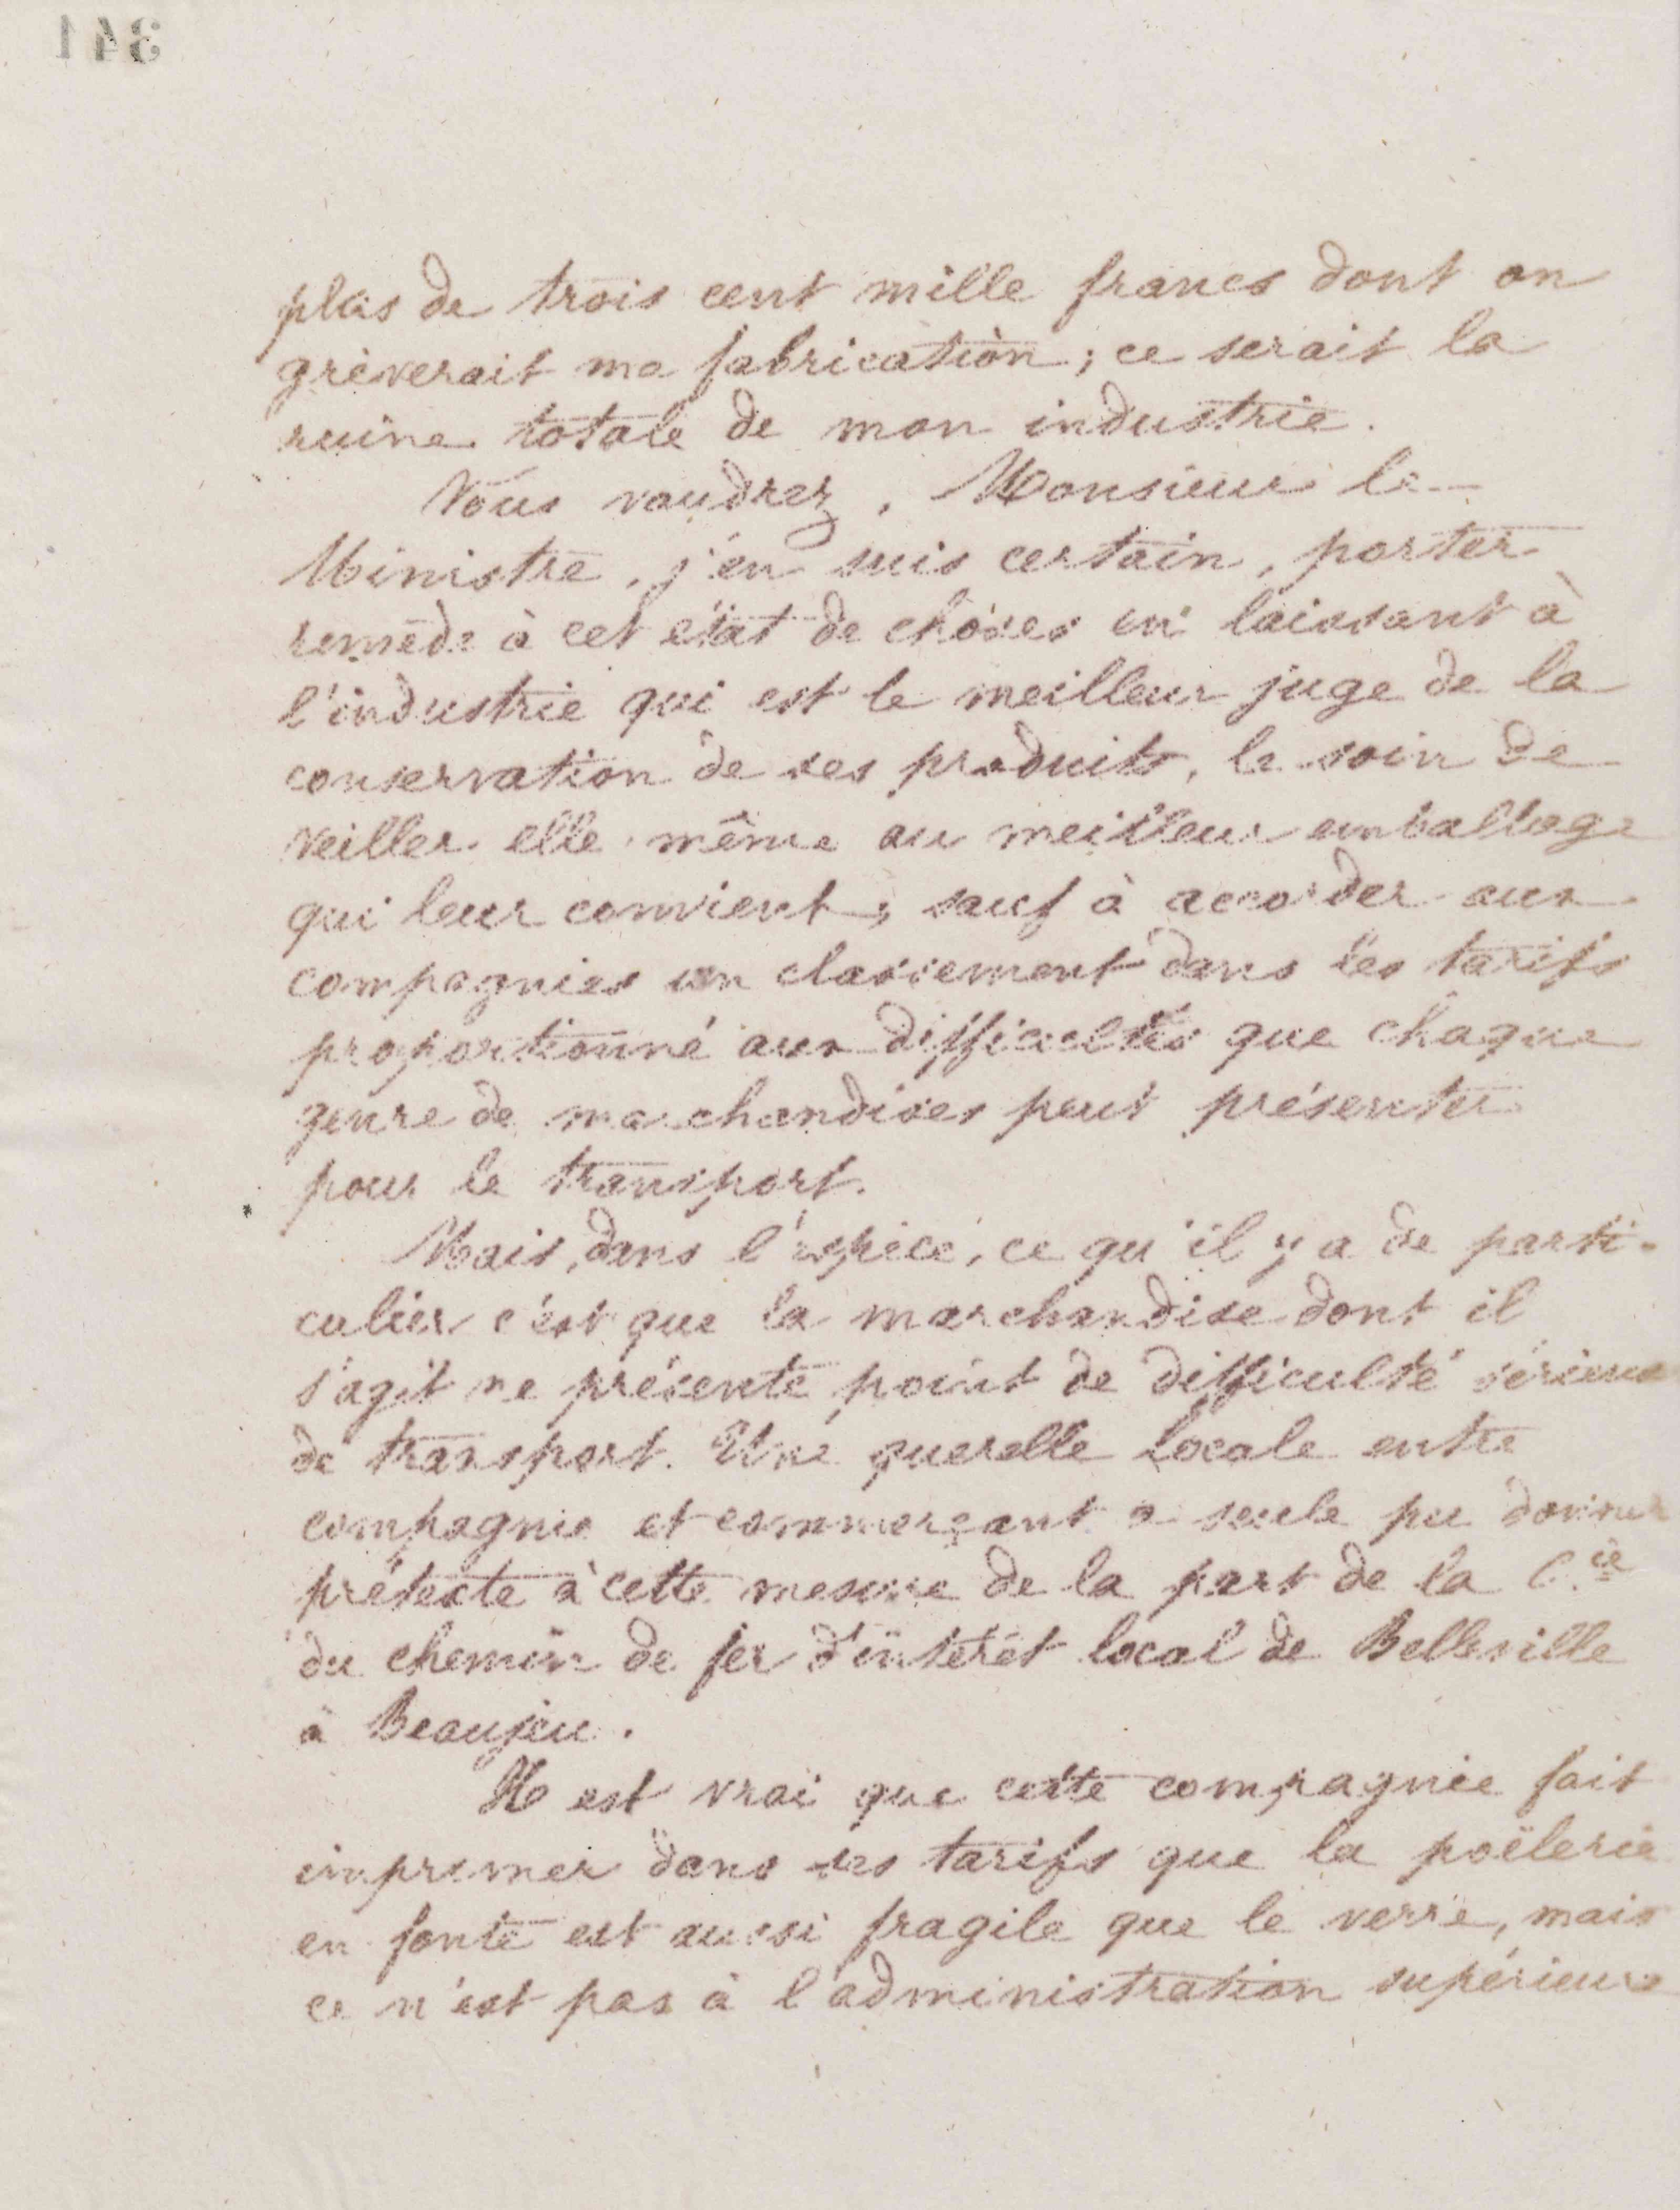 341
plus de trois cent mille francs dont on
grèverait ma fabrication ; ce serait la
ruine totale de mon industrie.
Vous voudrez, Monsieur le
Ministre, j'en suis certain, porter
remède à cet état de choses en laissant à
l'industrie qui est le meilleur juge de la
conservation de ses produits, le soin de
veiller elle même au meilleur emballage
qui leur convient, sauf à accorder aux
compagnies un classement dans les tarifs
proportionné aux difficultés que chaque
genre de marchandises peut présenter
pour le transport.
Mais, dans l'espèce, ce qu'il y a de parti-
culier c'est que la marchandise dont il
s'agit ne présente point de difficulté sérieuse
de transport. Une querelle locale entre
compagnie et commerçant a seule pu donner
prétexte à cette mesure de la part de la Cie
du chemin de fer d'intérêt local de Belleville
à Beaujeu.
Il est vrai que cette compagnie fait
imprimer dans ses tarifs que la poëlerie
en fonte est aussi fragile que le verre, mais
ce n'est pas à l'administration supérieure